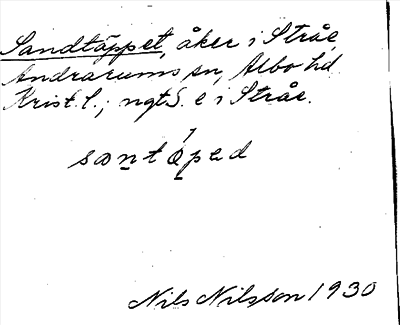 Sandtäppet, åker i Stråe,
Andrarums sn, Albo hd
Krist. l.; ngt S. e i Stråe.
santäped
Nils Nilsson 1930